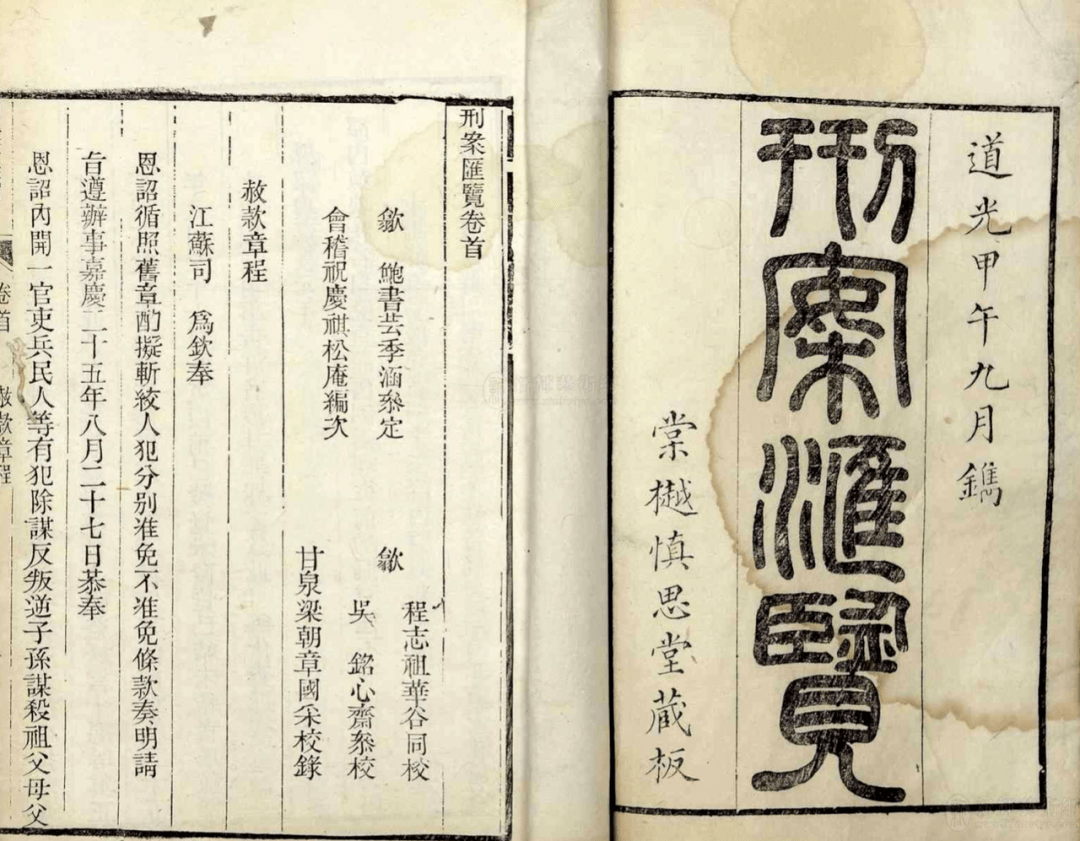 道光甲午九月鐫
刑案滙覽
棠樾慎思堂藏板
刑案匯覽卷首
歙 鮑書芸季涵叅定
歙 程志祖華谷同校
吳 銘心齋叅校
會稽祝慶祺松庵編次
甘泉梁朝章國采校錄
赦款章程
江蘇司 爲欽奉
恩詔循照舊章酌擬斬絞人犯分別准免不准免條款奏明請
旨遵辦事嘉慶二十五年八月二十七日恭奉
恩詔內開一官吏兵民人等有犯除謀反叛逆子孫謀殺祖父母父
卷首 赦款章程